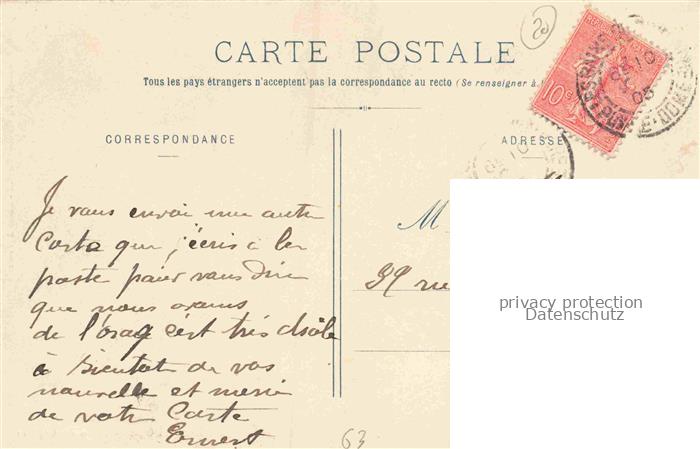 20
CARTE POSTALE
Tous les pays étrangers n'acceptent pas la correspondance au recto (Se renseigner à
CORRESPONDANCE
ADRESSE
10c
05
DOME
Je vous envoi une autre
Carte que j'écris à la
poste pour vous dire
que nous avons
de l'orag c'est très drôle
à bientot de vos
nouvelle et merci
de votre Carte
Ernest
M
39 rue
63
privacy protection
Datenschutz